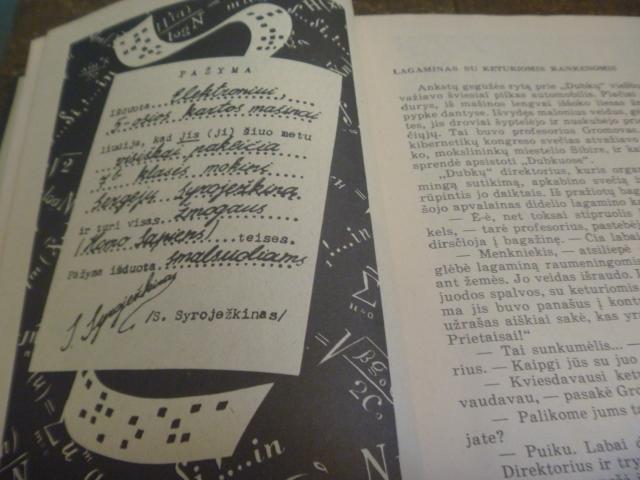 PAŽYMA
Išduota Elektroniui,
5-osios kartos mašinai
liudija, kad jis (ji) šiuo metu
visiškai pakeičia
7 b klasės mokinį
Sergėjų Syroježkiną
ir turi visas žmogaus
(Homo Sapiens) teises.
Pažyma išduota smalsuoliams
S. Syroježkinas
/S. Syroježkinas/
LAGAMINAS SU KETURIOMIS RANKENOMIS
Ankstų gegužės rytą prie „Dubkų" viešbu
važiavo šviesiai pilkas automobilis. Plačiai
durys, iš mašinos lengvai iššoko liesas
pypke dantyse. Išvydęs malonius veidus, gė
tes, jis droviai šyptelėjo ir nuskubėjo prie
čiųjų. Tai buvo profesorius Gromovas,
kibernetikų kongreso svečias atvažiavo
ko, mokslininkų miestelio Sibire, ir kai
sprendė apsistoti „Dubkuose".
„Dubkų" direktorius, kuris organ
mingą sutikimą, apkabino svečią
rūpintis jo daiktais. Iš pražiotų bag
šojo apvalainas didelio lagamino k
— E-ė, net toksai stipruolis
kels, — tarė profesorius, pastebėj
dirsčioja į bagažinę. — Čia labai
— Menkniekis, — atsiliepė
glėbė lagaminą raumeningomis
ant žemės. Jo veidas išraudo.
juodos spalvos, su keturiomis
ma jis buvo panašus į kont
užrašas aiškiai sakė, kas yra
Prietaisai!"
— Tai sunkumėlis... —
rius. — Kaipgi jūs su juo
— Kviesdavausi ketu
vaudavau, — pasakė Gro
— Palikome jums ta
jate?
— Puiku. Labai d
Direktorius ir try